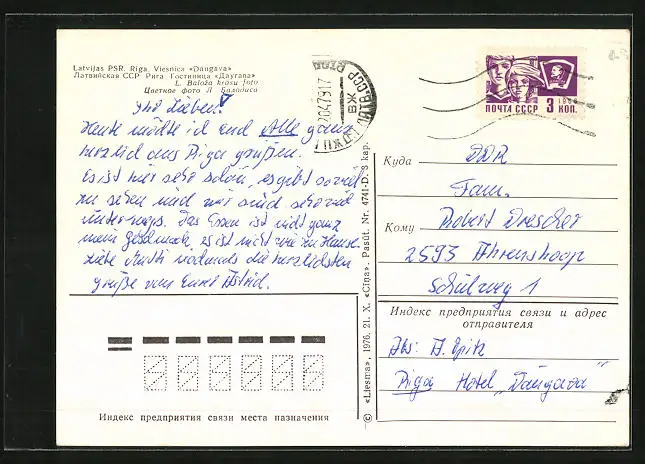 Latvijas PSR. Rīga. Viesnīca «Daugava»
Латвийская ССР Рига. Гостиница «Даугава»
L. Baloža krāsu foto
Цветное фото Л. Балодиса
Ihr Lieben!
Heute möchte ich Euch Alle ganz
herzlich aus Riga grüßen.
Es ist hier sehr schön, es gibt so viel
zu sehen und wir sind sehr viel
unterwegs. Das Essen ist nicht ganz
mein Geschmack, es ist nicht wie zu Hause.
Liebe Mutti nochmals die herzlichsten
Grüße von Eurer Astrid.
Индекс предприятия связи места назначения
© «Liesma», 1976. 21. X. «Cīņa». Pasūt. Nr. 4741-D. 3 kap.
ПОЧТА СССР 3 КОП.
1966
Куда DDR
Fam.
Кому Robert Drescher
2593 Ahrenshoop
Schulweg 1
Индекс предприятия связи и адрес
отправителя
Abs: A. Opitz
Riga Hotel „Daugava"